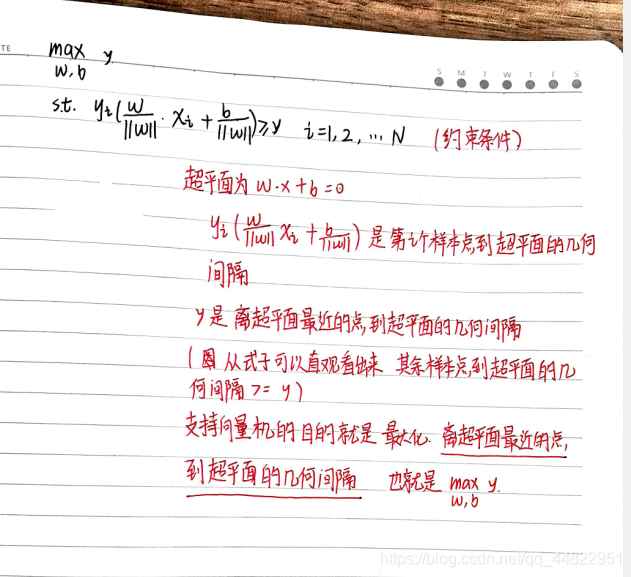 TE
S M T W T F S
max y
w,b
s.t. yi(w/||w|| · xi + b/||w||) ≥ y i=1,2,… N (约束条件)
超平面为 w·x+b=0
yi(w/||w|| xi + b/||w||) 是第i个样本点到超平面的几何
间隔
y是 离超平面最近的点,到超平面的几何间隔
( 从式子可以直观看出来 其余样本点到超平面的几
何间隔 >= y)
支持向量机的目的就是 最大化 离超平面最近的点,
到超平面的几何间隔 也就是 max y.
w,b
https://blog.csdn.net/qq_44822951